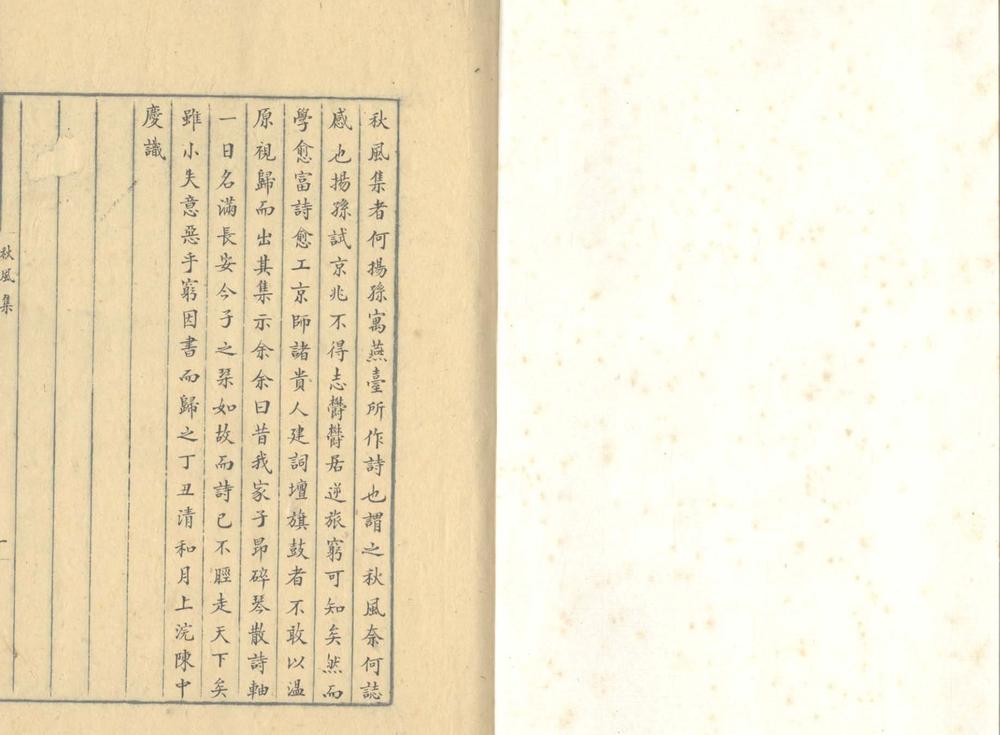 秋風集者何揚孫寓燕臺所作詩也謂之秋風奈何誌
感也揚孫試京兆不得志欝欝居逆旅窮可知矣然而
學愈富詩愈工京師諸貴人建詞壇旗鼓者不敢以温
原視歸而出其集示余余曰昔我家子昂碎琴散詩軸
一日名滿長安今子之琹如故而詩已不脛走天下矣
雖小失意惡乎窮因書而歸之丁丑清和月上浣陳中
慶識
秋風集
一